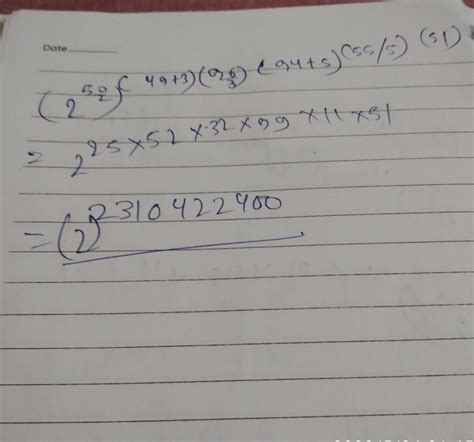 Date
(2^50/2)^(49+3)(96/3)(94+5)(55/5)(51)
= 2^25×52×32×99×11×51
= (2)^2310422400